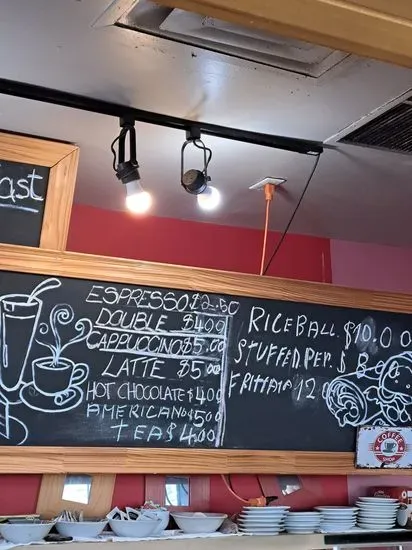 ast
ESPRESSO $2.50
DOUBLE $4.00
CAPPUCCINO $5.00
LATTE $5.00
HOT CHOCOLATE $4.00
AMERICANO $5.00
TEA $4.00
RICE BALL $10.00
STUFFED PEP. $8
FRITTATA 12.0
COFFEE
SHOP